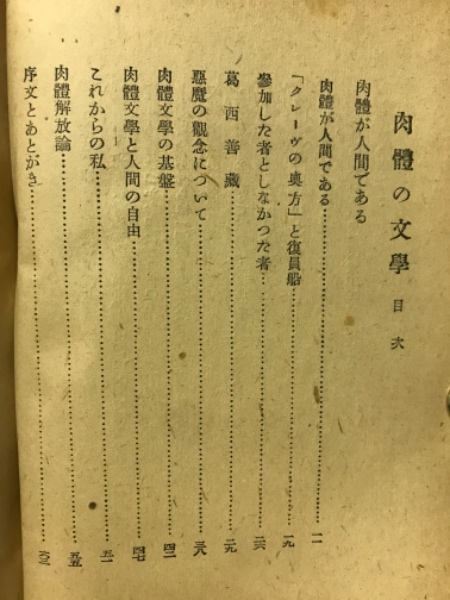 肉體の文學 目次
肉體が人間である
肉體が人間である……一一
「クレーヴの奧方」と復員船……一九
參加した者としなかつた者……二六
葛西善藏……二九
惡魔の觀念について……三八
肉體文學の基盤……四二
肉體文學と人間の自由……四七
これからの私……五一
肉體解放論……五五
序文とあとがき……六二